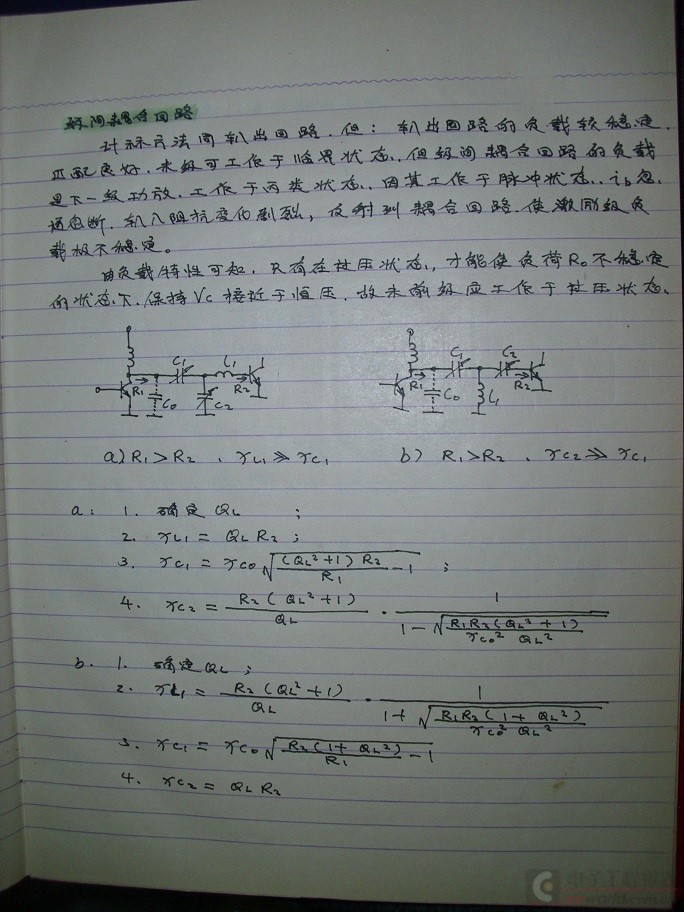 级间耦合回路
计算方法同输出回路．但：输出回路的负载较稳定．
匹配良好．末级可工作于临界状态．但级间耦合回路的负载
是下一级功放．工作于丙类状态．因其工作于脉冲状态．ib忽
通忽断．输入阻抗变化剧烈，反射到耦合回路．使激励级负
载极不稳定。
由负载特性可知．只有在过压状态，才能使负荷R₀不稳定
的状态下．保持Vc接近于恒压．故末前级应工作于过压状态．
C₁ L₁ R₁ C₀ C₂ R₂
C₁ C₂ R₁ C₀ L₁ R₂
a) R₁ > R₂ ． xL₁ ≫ xC₁
b) R₁ > R₂ ． xC₂ ≫ xC₁
a： 1. 确定 QL ；
2. xL₁ = QL R₂ ；
3. xC₁ = xC₀ √((QL²+1) R₂ / R₁ − 1) ；
4. xC₂ = R₂ (QL²+1) / QL · 1 / (1 − √(R₁R₂(QL²+1) / xC₀² QL²))
b. 1. 确定QL ；
2. xL₁ = R₂ (QL²+1) / QL · 1 / (1 + √(R₁R₂(1+QL²) / xC₀² QL²))
3. xC₁ = xC₀ √(R₂(1+QL²) / R₁ − 1)
4. xC₂ = QL R₂
电子工程世界